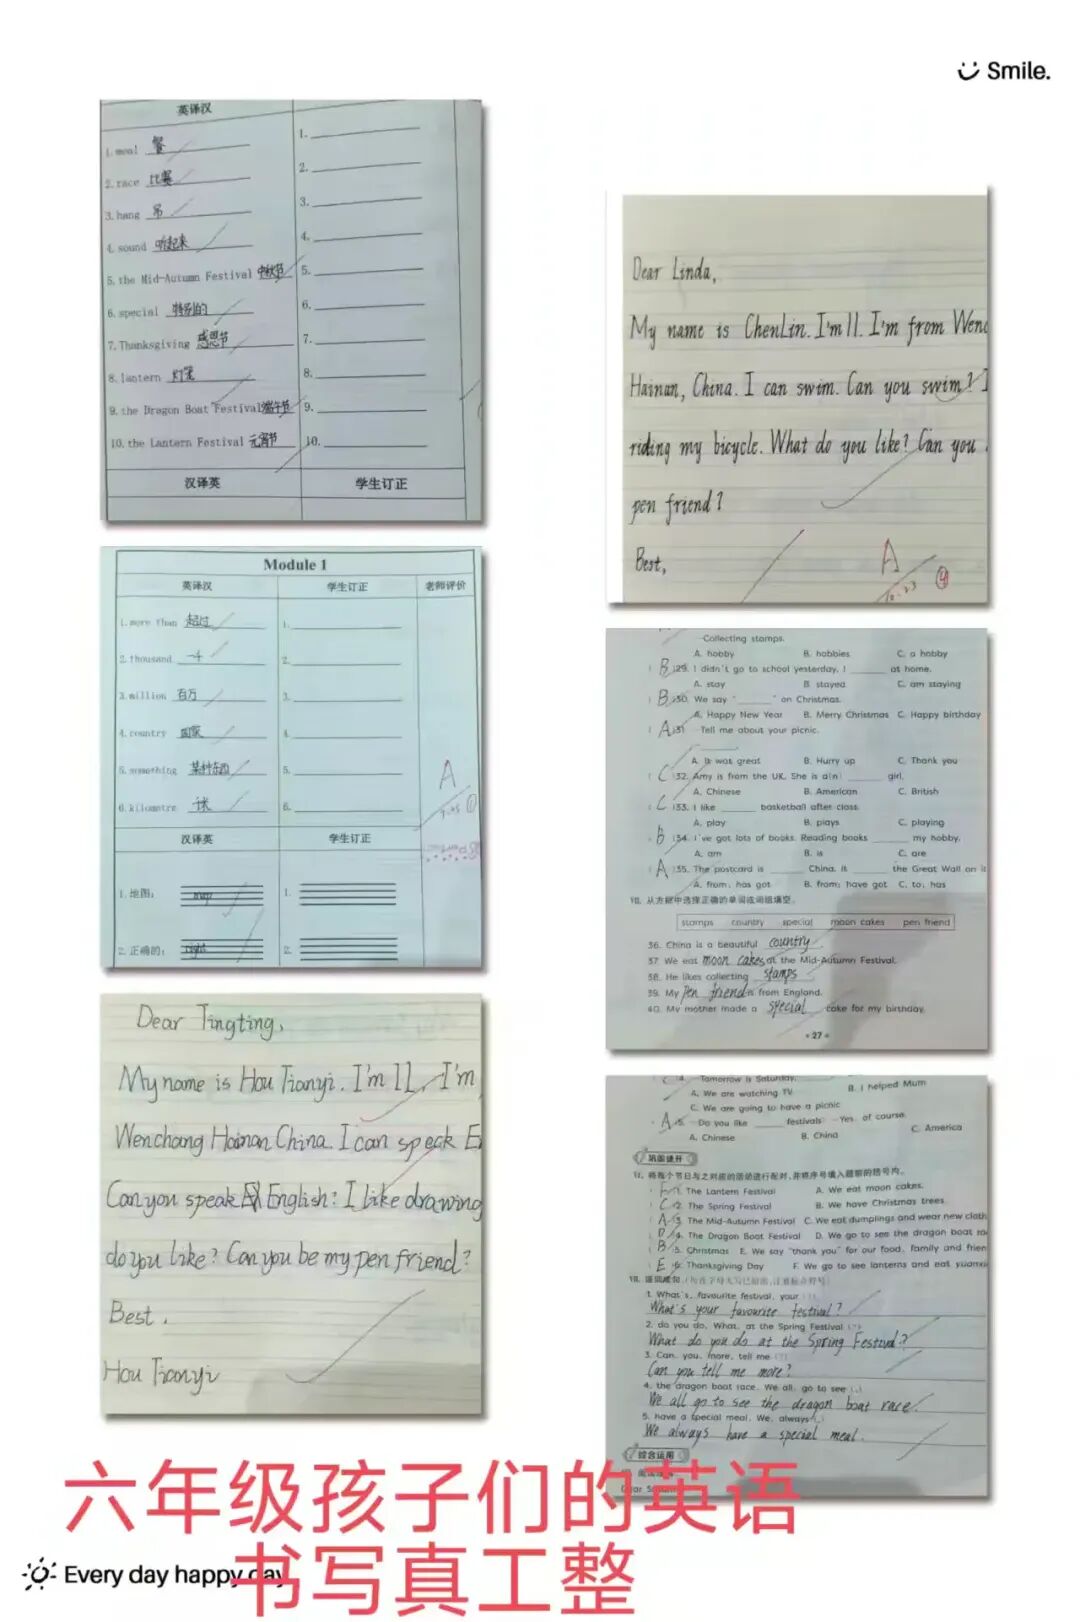 Smile.
英译汉
1.meal 餐
2.race 比赛
3.hang 吊
4.sound 听起来
5.the Mid-Autumn Festival 中秋节
6.special 特别的
7.Thanksgiving 感恩节
8.lantern 灯笼
9.the Dragon Boat Festival 端午节
10.the Lantern Festival 元宵节
1.
2.
3.
4.
5.
6.
7.
8.
9.
10.
汉译英 学生订正
Module 1
英译汉 学生订正 老师评价
1.more than 超过
2.thousand 一千
3.million 百万
4.country 国家
5.something 某种东西
6.kilometre 千米
1.
2.
3.
4.
5.
6.
A
汉译英 学生订正
1.地图: map 1.
2.正确的: right 2.
Dear Tingting,
My name is Hou Tianyi. I'm 11. I'm
Wenchang Hainan China. I can speck E
Can you speak English? I like drawing
do you like? Can you be my pen friend?
Best,
Hou Tianyi
Dear Linda,
My name is ChenLin. I'm 11. I'm from Wenc
Hainan, China. I can swim. Can you swim? I
riding my bicycle. What do you like? Can you
pen friend?
Best,
A
10.23
Collecting stamps.
A. hobby B. hobbies C. a hobby
B 29. I didn't go to school yesterday. I ______ at home.
A. stay B. stayed C. am staying
B 30. We say "______" on Christmas.
A. Happy New Year B. Merry Christmas C. Happy birthday
A 31. Tell me about your picnic.
A. It was great B. Hurry up C. Thank you
C 32. Amy is from the UK. She is a(n) ______ girl.
A. Chinese B. American C. British
C 33. I like ______ basketball after class.
A. play B. plays C. playing
B 34. I've got lots of books. Reading books ______ my hobby.
A. am B. is C. are
A 35. The postcard is ______ China. It ______ the Great Wall on it
A. from; has got B. from; have got C. to; has
从方框中选择正确的单词或词组填空。
stamps country special moon cakes pen friend
36. China is a beautiful country
37. We eat moon cakes at the Mid-Autumn Festival.
38. He likes collecting stamps
39. My pen friend is from England.
40. My mother made a special cake for my birthday.
27
C 4. Tomorrow is Saturday.
A. We are watching TV B. I helped Mum
C. We are going to have a picnic
A 5. Do you like ______ festivals? Yes, of course.
A. Chinese B. China C. America
巩固提升
将每个节日与之对应的活动进行配对,并将序号填入题前的括号内。
F 1. The Lantern Festival A. We eat moon cakes.
C 2. The Spring Festival B. We have Christmas trees.
A 3. The Mid-Autumn Festival C. We eat dumplings and wear new cloth
D 4. The Dragon Boat Festival D. We go to see the dragon boat ra
B 5. Christmas E. We say "thank you" for our food, family and frien
E 6. Thanksgiving Day F. We go to see lanterns and eat yuanx
连词成句。
1. What's, favourite festival, your (?)
What's your favourite festival?
2. do you do, What, at the Spring Festival (?)
What do you do at the Spring Festival?
3. Can, you, more, tell me (?)
Can you tell me more?
4. the dragon boat race, We all, go to see (.)
We all go to see the dragon boat race.
5. have a special meal, We, always (.)
We always have a special meal.
综合运用
六年级孩子们的英语
书写真工整
Every day happy day